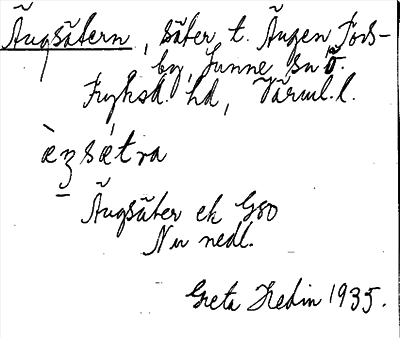 Ängsätern, säter t. Ängen Fors-
by, Sunne sn Ö.
Fryksd. hd, Värml. l.
ὲzsǽtra
Ängsäter ek G80
Nu nedl.
Greta Hedin 1935.